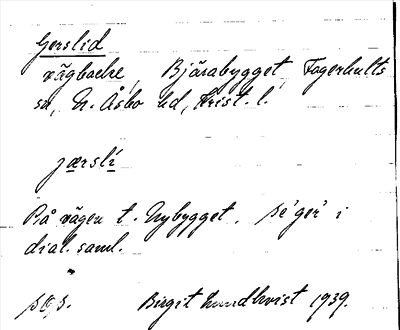 Gerslid
vägbacke, Bjärabygget, Fagerhults
sn, N. Åsbo hd, Krist. l.
jærslí
På vägen t. Nybygget. på'ger' i
dial. saml.
Birgit Lundkvist 1939.